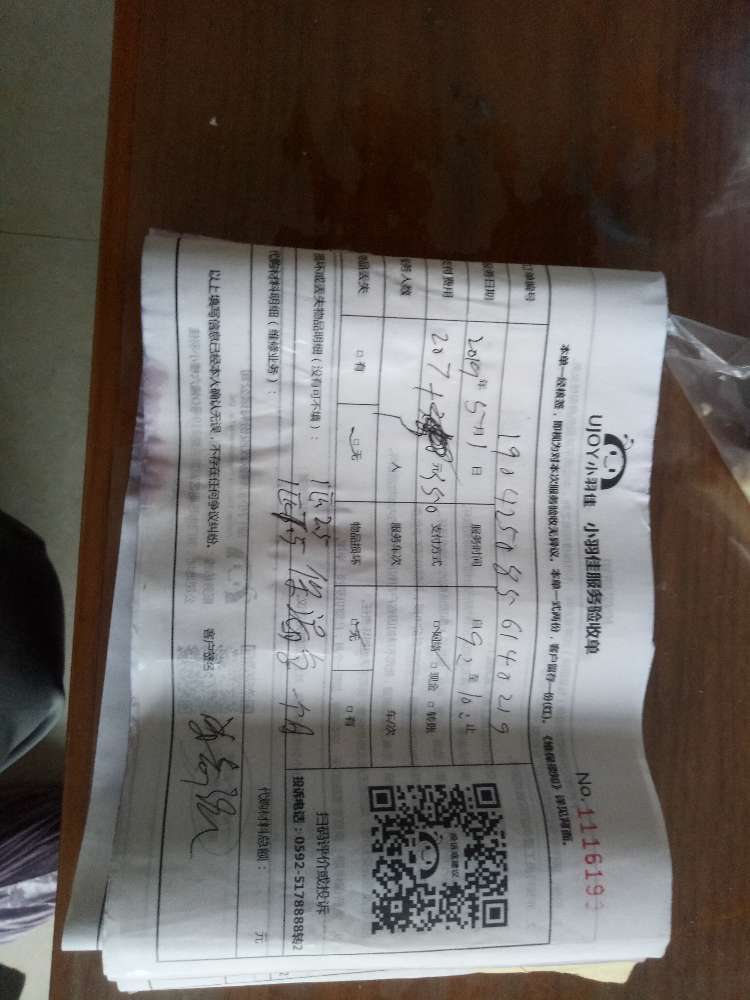 UJOY小羽佳 小羽佳服务验收单 No.1116193
本单一经核签，即视为对本次服务验收无异议。本单一式两份，客户留存一份(红)。《维保须知》详见背面。
订单编号 1904250856140219
服务日期 2019年5月1日 服务时间 自9:至10:止
支付费用 207+ 元350 支付方式 □网络 □现金 □转账
服务人数 1人 服务车次 车/次
物品丢失 □有 □无 物品损坏 □无 □有
损坏或丢失物品明细（没有可不填）：
代购材料明细（维修业务）：
代购材料总额： 元
扫码评价或投诉
投诉电话：0592-5178888转2
以上填写信息已经本人确认无误，不存在任何争议纠纷。 客户签名：